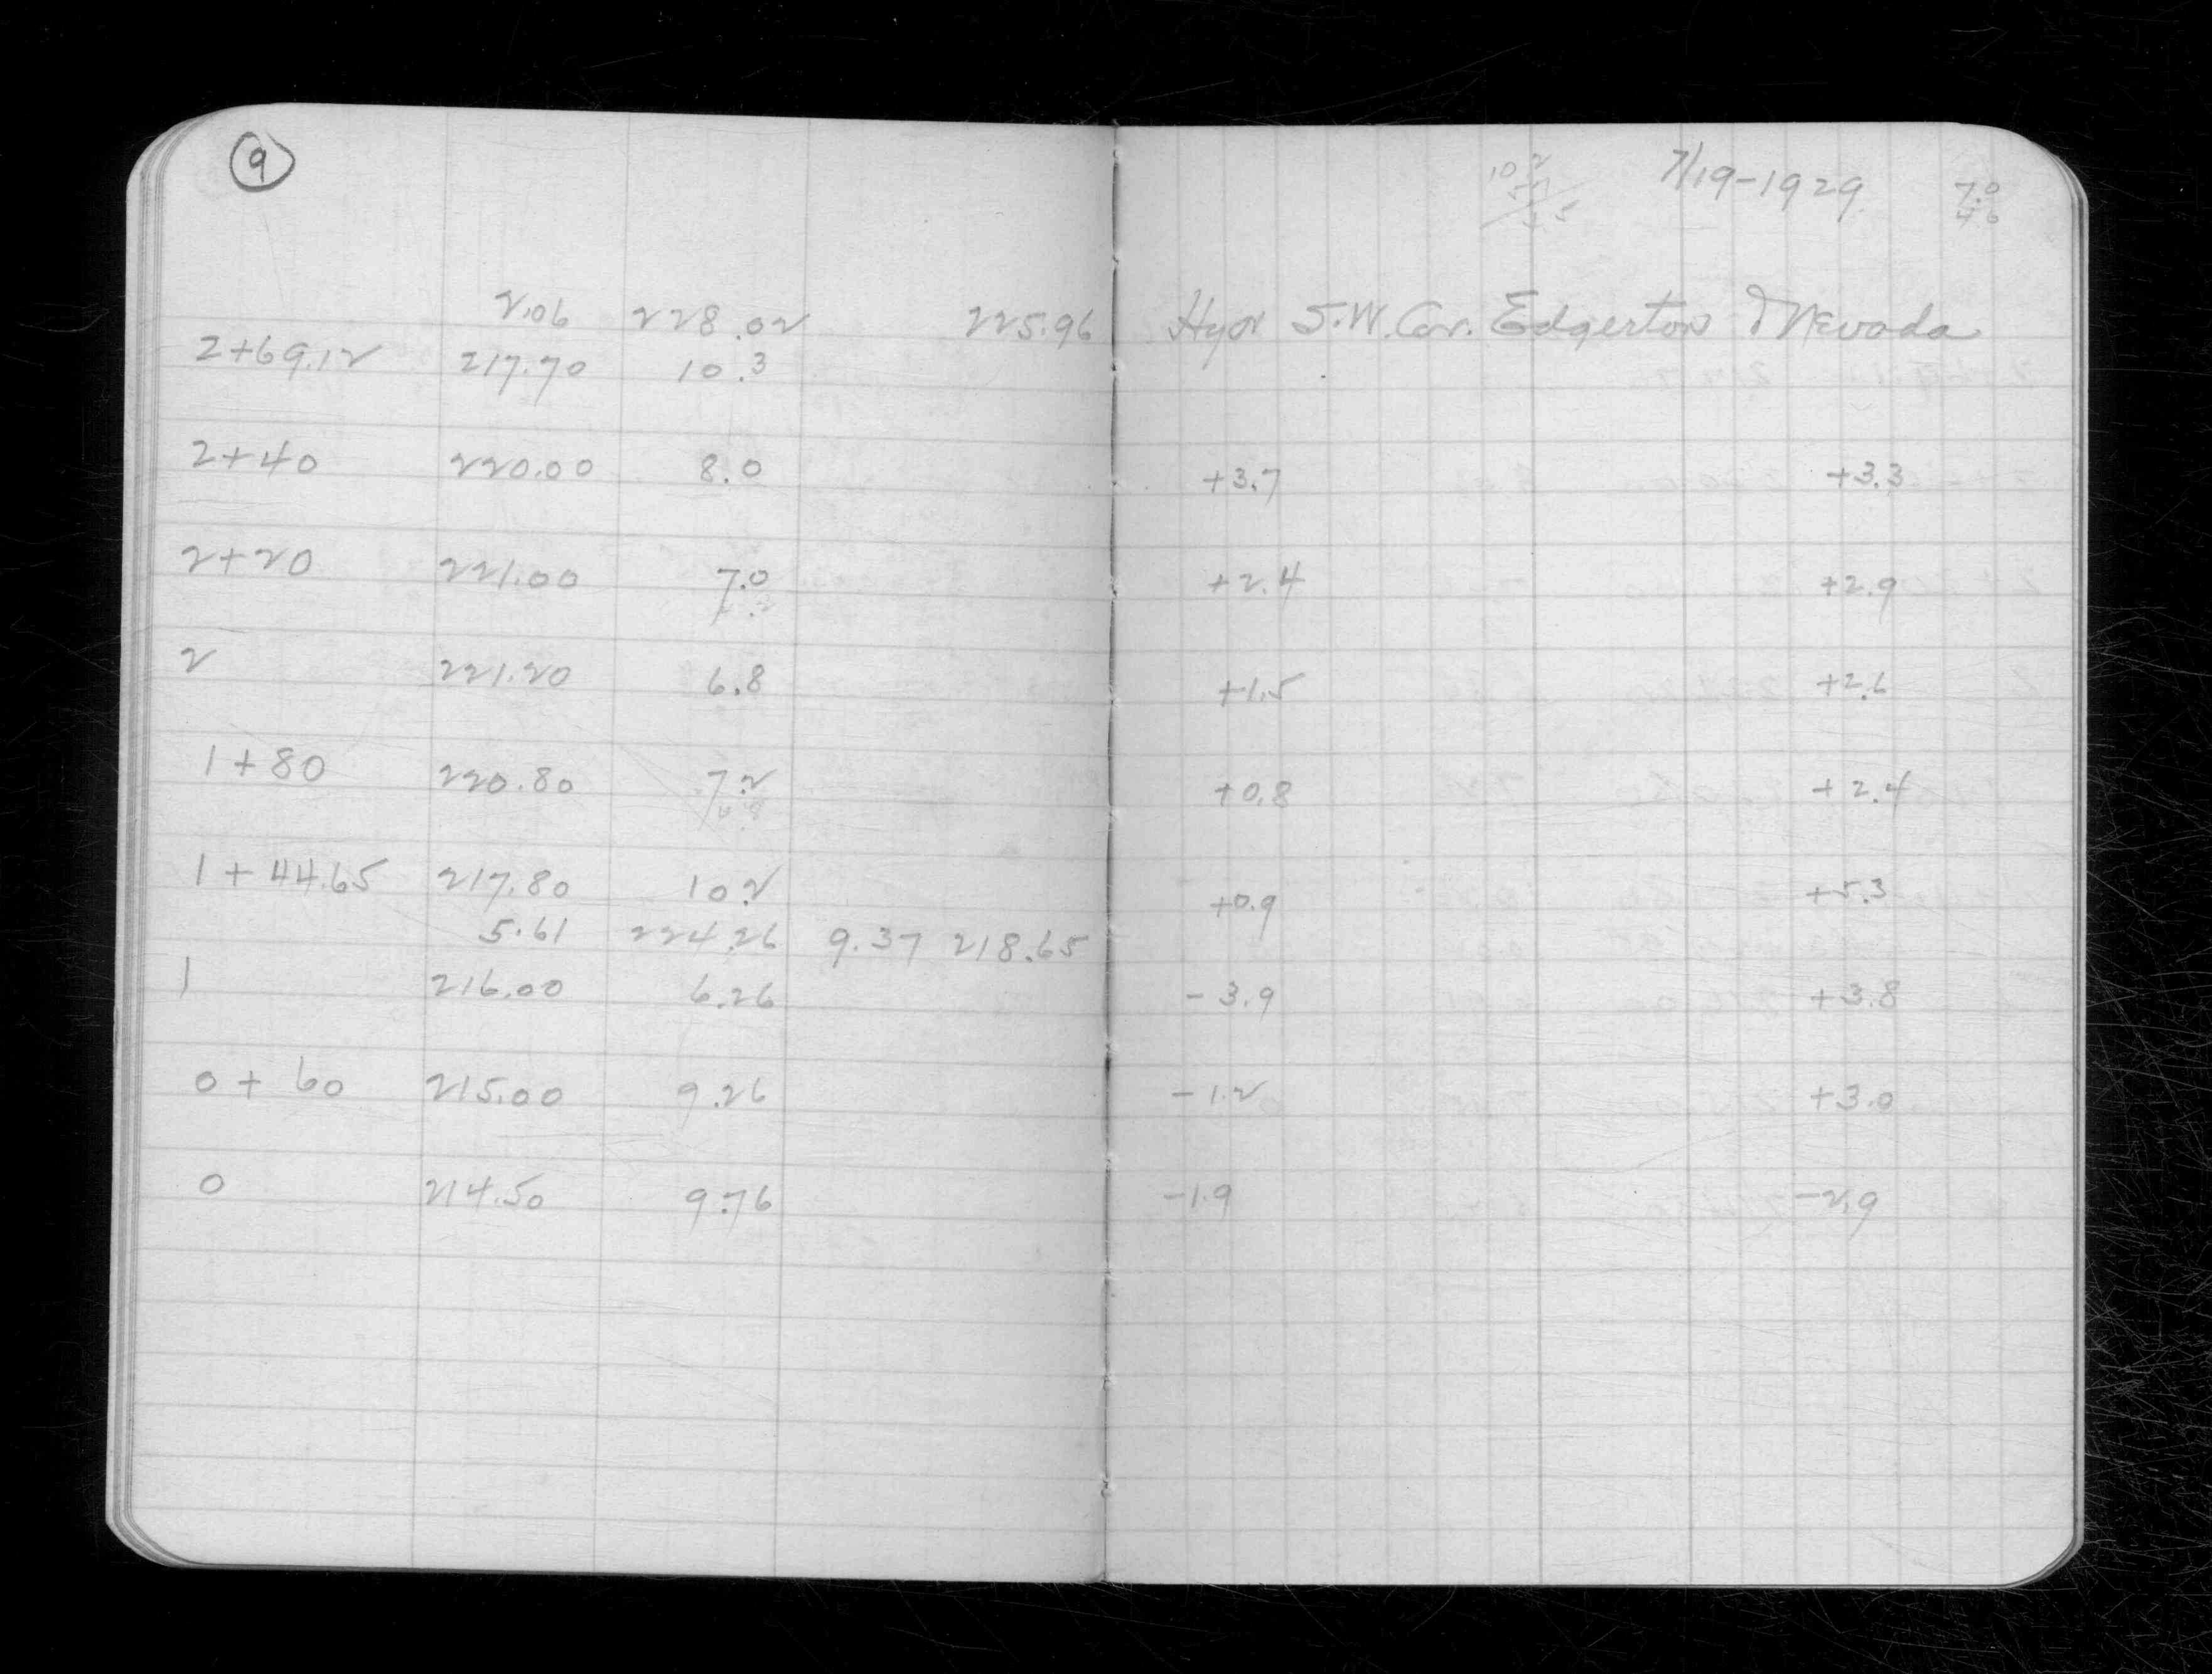 9
7/19-1929
10.2
7.0
4.6
2.06 228.02 225.96 Hyd S.W. Cor. Edgerton & Nevada
2+69.12 217.70 10.3
2+40 220.00 8.0 +3.7 +3.3
2+20 221.00 7.0 +2.4 +2.9
2 221.20 6.8 +1.5 +2.6
1+80 220.80 7.2 +0.8 +2.4
1+44.65 217.80 10.2 +0.9 +5.3
5.61 224.26 9.37 218.65
1 216.00 6.26 -3.9 +3.8
0+60 215.00 9.26 -1.2 +3.0
0 214.50 9.76 -1.9 -2.9